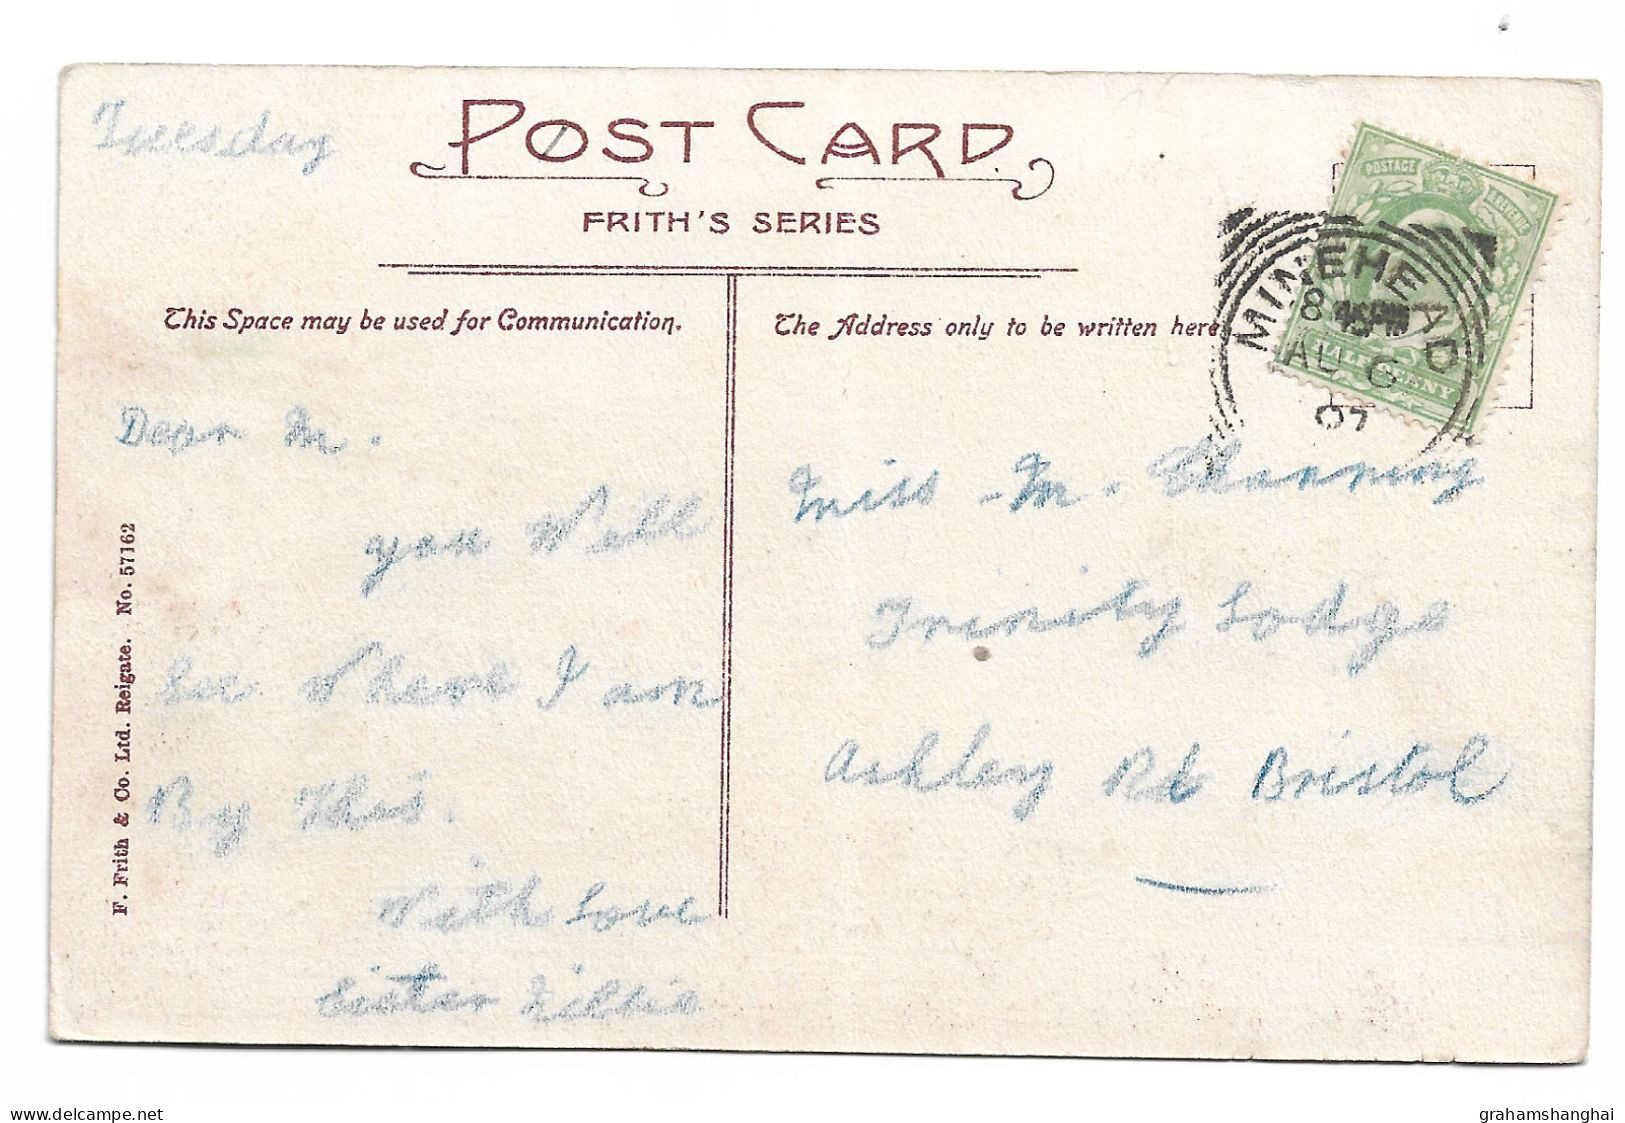 Tuesday
POST CARD
FRITH'S SERIES
This Space may be used for Communication.
The Address only to be written here
POSTAGE
REVENUE
HALFPENNY
MINEHEAD
8
AU 6
07
Dear M.
you Will
See Where I am
By This.
With Love
Sister Lillie
Miss M. Channing
Trinity Lodge
Ashley Rd Bristol
F. Frith & Co. Ltd. Reigate. No. 57162
delcampe.net
grahamshanghai